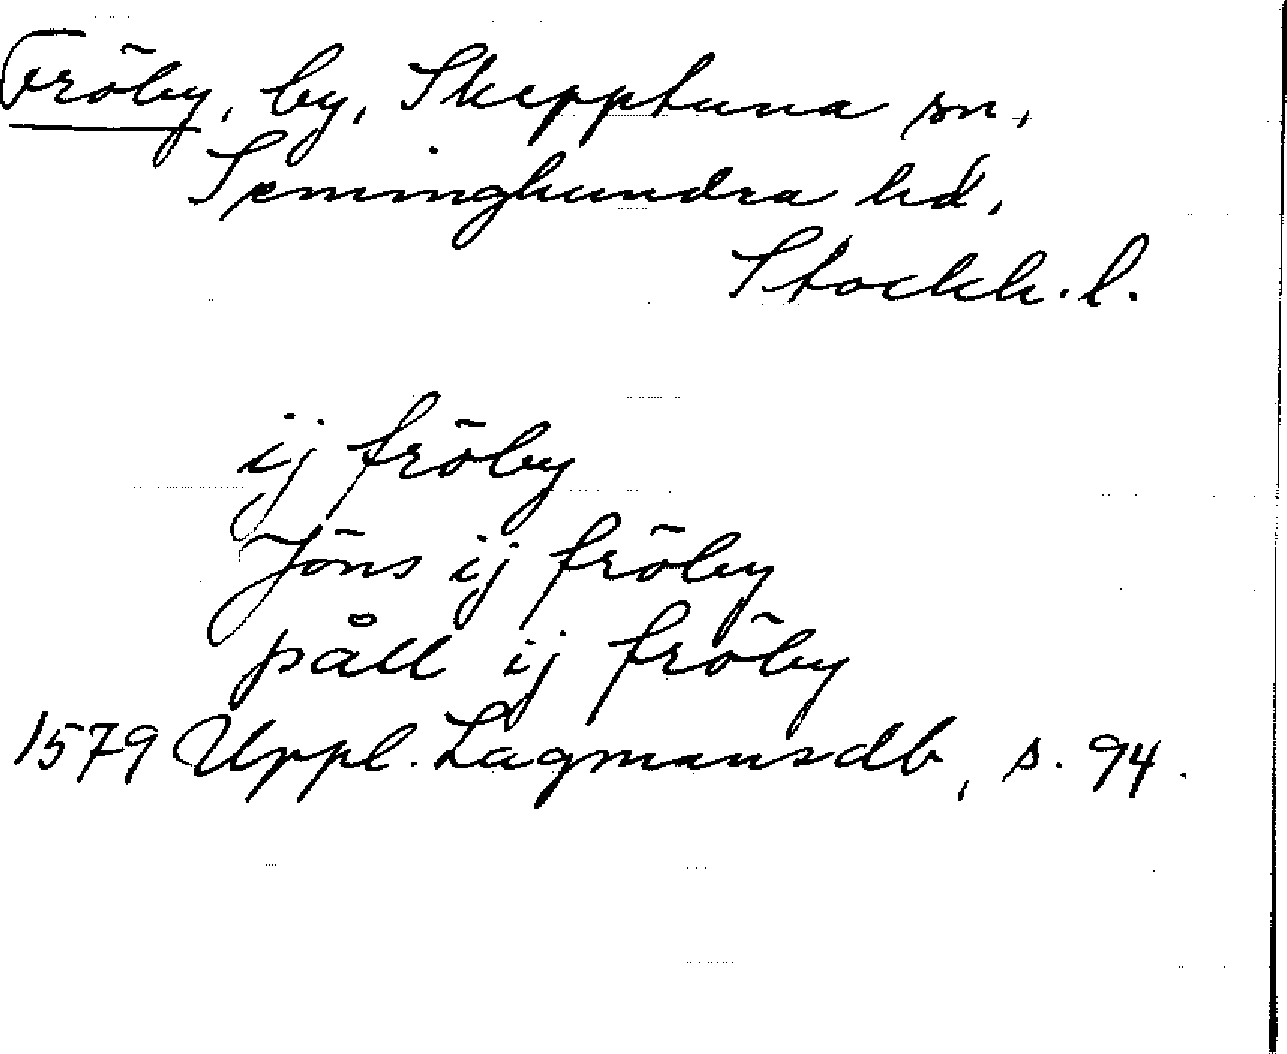 Fröby, by, Skepptuna sn,
Seminghundra hd,
Stockh. l.
ij fröby
Jöns ij fröby
påll ij fröby
1579 Uppl. Lagmansdb, s. 94.